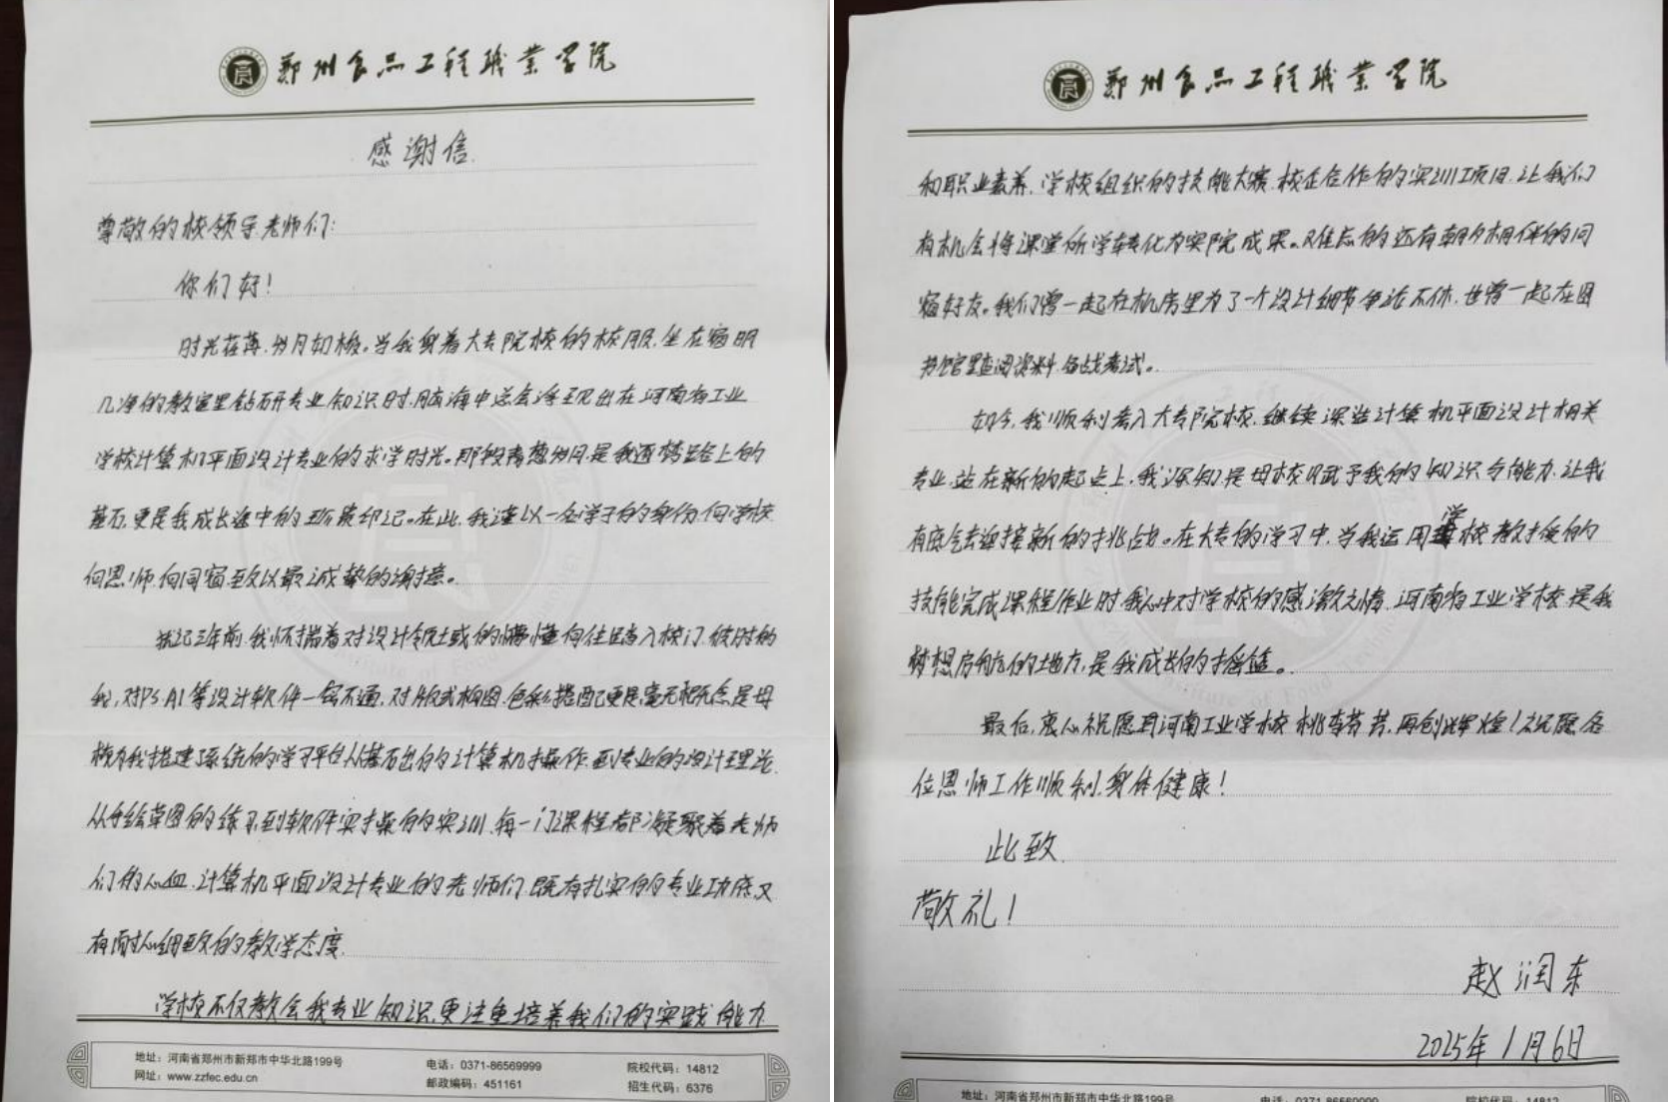 郑州食品工程职业学院
感谢信
尊敬的校领导、老师们:
你们好!
时光荏苒,岁月如梭。当我身着大专院校的校服,坐在窗明
几净的教室里钻研专业知识时,脑海中总会浮现出在河南省工业
学校计算机平面设计专业的求学时光。那段青葱岁月,是我逐梦路上的
基石,更是我成长途中的珍贵印记。在此,我谨以一名学子的身份,向学校
向恩师,向同窗致以最诚挚的谢意。
犹记三年前,我怀揣着对设计领域的懵懂向往踏入校门,彼时的
我,对PS、AI等设计软件一窍不通,对版式构图、色彩搭配更是毫无概念,是母
校为我搭建了系统的学习平台从基础的计算机操作,到专业的设计理论,
从手绘草图的练习,到软件实操的实训,每一门课程都凝聚着老师
们的心血,计算机平面设计专业的老师们,既有扎实的专业功底又
有耐心细致的教学态度.
学校不仅教会我专业知识,更注重培养我们的实践能力
地址:河南省郑州市新郑市中华北路199号
电话:0371-86569999
院校代码:14812
网址:www.zzfec.edu.cn
邮政编码:451161
招生代码:6376
郑州食品工程职业学院
和职业素养,学校组织的技能大赛,校企合作的实训项目,让我们
有机会将课堂所学转化为实院成果。难忘的还有朝夕相伴的同
窗好友。我们曾一起在机房里为了一个设计细节争论不休,也曾一起在图
书馆里查阅资料,备战考试。
如今,我顺利考入大专院校,继续深造计算机平面设计相关
专业,站在新的起点上,我深知,是母校赋予我的知识与能力,让我
有底气去迎接新的挑战。在大专的学习中,当我运用学校教授的
技能完成课程作业时,我心中对学校的感激之情,河南省工业学校,是我
梦想启航的地方,是我成长的摇篮。
最后,衷心祝愿河南工业学校桃李芬芳,再创辉煌!祝愿各
位恩师工作顺利,身体健康!
此致
敬礼!
赵润东
2025年1月6日
地址:河南省郑州市新郑市中华北路199号
电话:0371-86569999
院校代码:14812